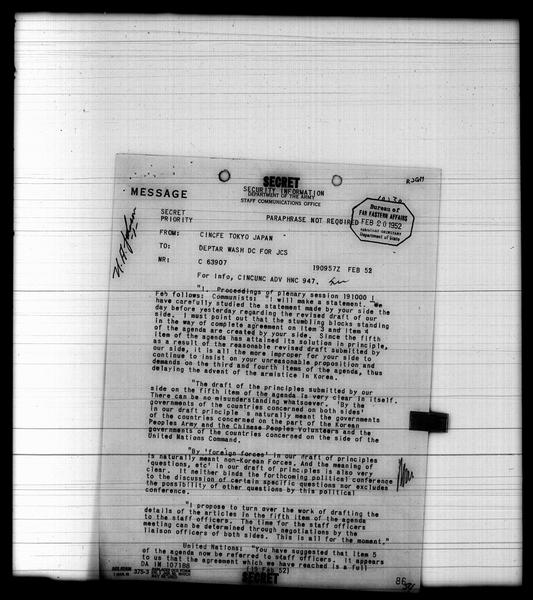 SECRET
SECURITY INFORMATION
DEPARTMENT OF THE ARMY
STAFF COMMUNICATIONS OFFICE
MESSAGE
SECRET
PRIORITY
PARAPHRASE NOT REQUIRED
Bureau of
FAR EASTERN AFFAIRS
FEB 20 1952
Department of State
FROM: CINCFE TOKYO JAPAN
TO: DEPTAR WASH DC FOR JCS
NR: C 63907
190957Z FEB 52
For info, CINCUNC ADV HNC 947.
"1. Proceedings of plenary session 191000 I
Feb follows: Communists: "I will make a statement. We
have carefully studied the statement made by your side the
day before yesterday regarding the revised draft of our
side. I must point out that the stumbling blocks standing
in the way of complete agreement on item 3 and item 4
of the agenda are created by your side. Since the fifth
item of the agenda has attained its solution in principle,
as a result of the reasonable revised draft submitted by
our side, it is all the more improper for your side to
continue to insist on your unreasonable proposition and
demands on the third and fourth items of the agenda, thus
delaying the advent of the armistice in Korea.
"The draft of the principles submitted by our
side on the fifth item of the agenda is very clear in itself.
There can be no misunderstanding whatsoever. 'By the
governments of the countries concerned on both sides'
in our draft principle is naturally meant the governments
of the countries concerned on the part of the Korean
Peoples Army and the Chinese Peoples Volunteers and the
governments of the countries concerned on the side of the
United Nations Command.
"By 'foreign forces' in our draft of principles
is naturally meant non-Korean Forces. And the meaning of
'questions, etc' in our draft of principles is also very
clear. It neither binds the forthcoming political conference
to the discussion of certain specific questions nor excludes
the possibility of other questions by this political
conference.
"I propose to turn over the work of drafting the
details of the articles in the fifth item of the agenda
to the staff officers. The time for the staff officers
meeting can be determined through negotiations by the
liaison officers of both sides. This is all for the moment."
United Nations: "You have suggested that Item 5
of the agenda now be referred to staff officers. It appears
to us that the agreement which we have reached is a full
DA IN 107188
(19 Feb 52)
375-3
SECRET
86